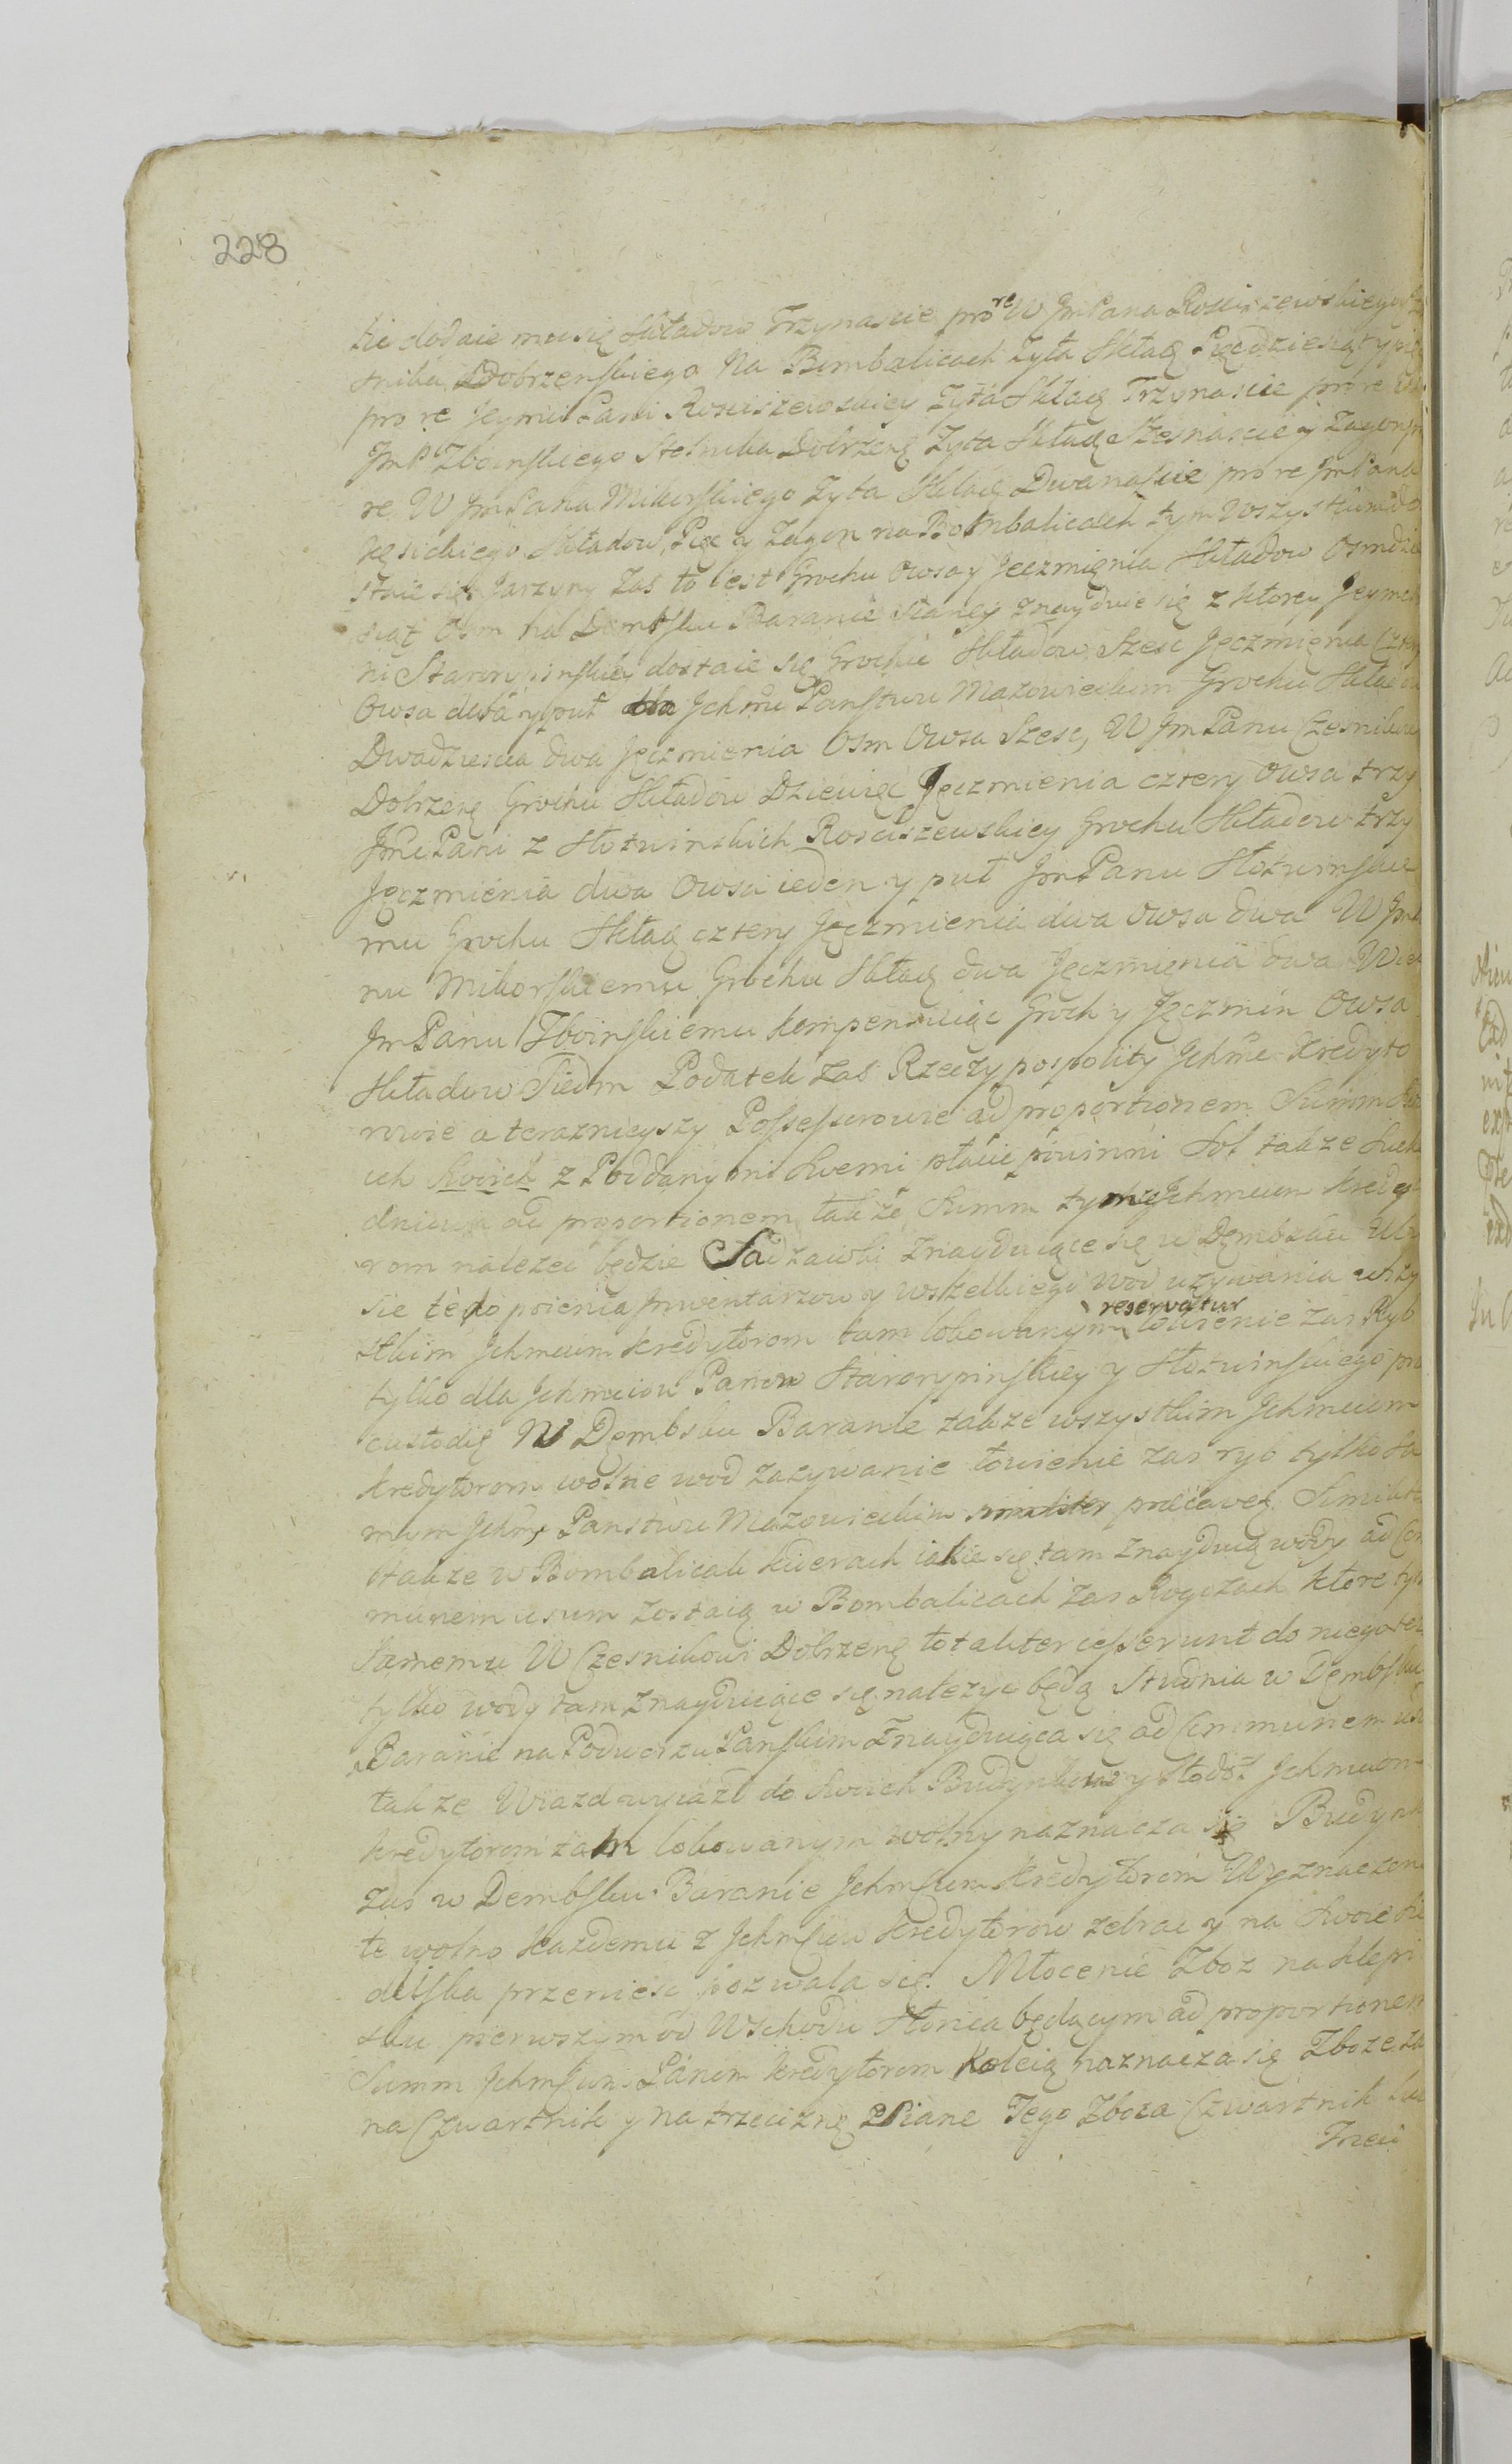 228
kie dodaie mu się Składow Trzynascie pro re W Jm Pana Rosciszewskiego
snika Dobrzenskiego Na Bombalicach Żyta Skłaḑ Pięcdziesiąt y pię
pro re Jeymci Pani Rosciszewskiey Zyta Skład Trzynascie pro re
Jm P Zboinskiego Stolnika Dobrzeng Zyta Skład Szesnascie y Zagon
re W Jm Pana Mikorskiego Zyta Skład Dwanascie pro re Jm Pana
Kęsickiego Składow Pięc y Zagon na Bombalicach tym wszystkim do
staie się Jarzyny Zas to iest Grochu Owsa y Jęczmięnia Składow Osmdzie
siąt Osm na Dembsku Baranie Sianey znayduie się z ktorey Jeymci
ni Starorypinskiey dostaie się Grochu Składow Szesc Jęczmięnia Cztery
Owsa dwa y puł Jchmciu Panstwu Mazowieckim Grochu Składow
Dwadziescia dwa Jęczmienia Osm Owsa Szesc, W Jm Panu Czesnikowi
Dobrzeng Grochu Składow Dziewięc Jęczmienia cztery Owsa trzy
Jmci Pani z Słotwinskich Rosciszewskiey Grochu Składow trzy
Jęczmienia dwa Owsa ieden y puł Jm Panu Słotwinskie
mu Grochu Skład cztery Jęczmienia dwa Owsa dwa W Jm
nu Mikorskiemu Grochu Skład dwa Jęczmięnia dwa
Jm Panu Zboinskiemu kompensuiąc Groch y Jęczmin Owsa
Składow Siedm Podatek zas Rzeczypospolity Jchmc kredyto
rowie a teraznieyszy Possessorowie ad proportionem Summ
ich Swoich z Poddanymi Swemi płacić powinni Sol także
ad proportionem także Summ tymże Jchmciom kredyt
rom nalezeć będzie Sadzawki znayduiące się w Dembsku
sie te do poienia Inwentarzow y wszelkiego wod uzywania wszy
stkim Jchmciom kredytorom tam lokowanym reservatur łowienie zas Ryb
tylko dla Jchmciow Panow Starorypinskiey y Słotwinskiego pro
custodią W Dembsku Baranie takze wszystkim Jchmciom
kredytorom wolne wod zazywanie łowienie zas ryb tylko sa
mym Jchmc Panstwu Mazowieckim praecavet. Similiter
takze w Bombalicach iakie się tam znayduią wody ad Com
munem usum zostaią w Bombalicach zas Rogozach ktore tylko
Samemu W Czesnikowi Dobrzeng totaliter cesserunt do niego tez
tylko wody tam znayduiące się należyc będą Studnia w Dembsku
Baranie na Podworzu Panskim Znayduiąca się ad Communem usu
takze Wiazd wyiazd do Swoich Budynkow y Stodoł Jchmciom
kredytorom tam lokowanym wolny naznacza się Budynki
zas w Dembsku Baranie Jchmciom kredytorom Wyznaczone
te wolno kazdemu z Jchmciow kredytorow zebrac y na Swoie sie
dliska przeniesc pozwala się. Młocenie Zboz na klepi
sku pierwszym od Wschodu Słonca będącym ad proportionem
Summ Jchmciom Panom kredytorom Koleią naznacza się Zboze za
na Czwartnik y na trzeciznę Siane Tego Zboza Czwartnik
Trzeci